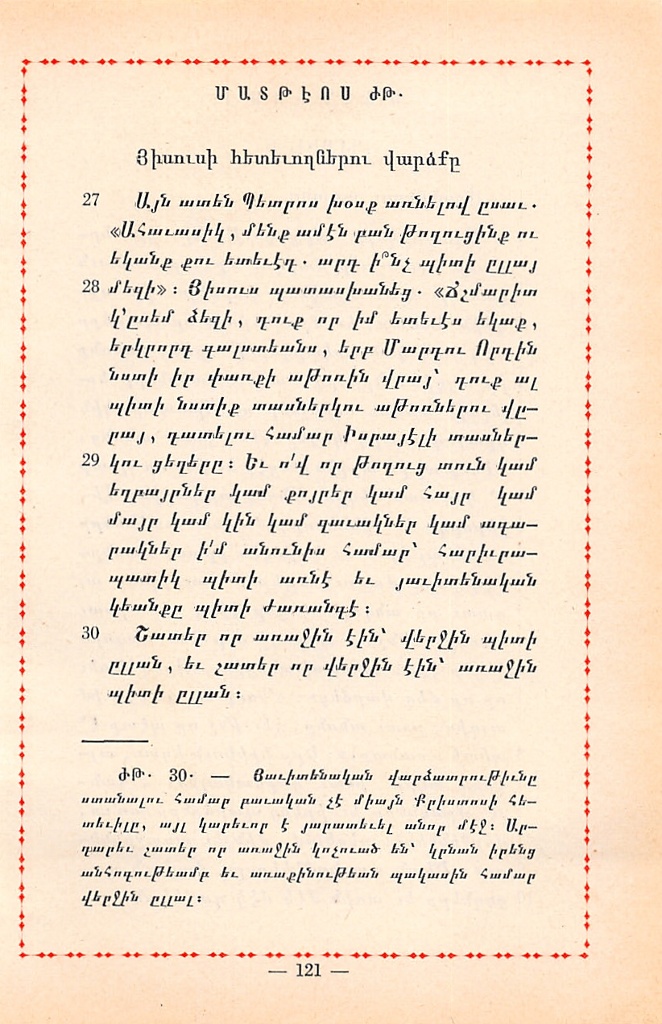 ՄԱՏԹԷՈՍ ԺԹ.
Յիսուսի հետեւողներու վարձքը
27 Այն ատեն Պետրոս խօսք առնելով ըսաւ.
«Ահաւասիկ, մենք ամէն բան թողուցինք ու
եկանք քու ետեւէդ. արդ ի՞նչ պիտի ըլլայ
28 մեզի»։ Յիսուս պատասխանեց. «Ճշմարիտ
կ՚ըսեմ ձեզի, դուք որ իմ ետեւէս եկաք,
երկրորդ գալստեանս, երբ Մարդու Որդին
նստի իր փառքի աթոռին վրայ՝ դուք ալ
պիտի նստիք տասներկու աթոռներու վը—
րայ, դատելու համար Իսրայէլի տասներ—
29 կու ցեղերը։ Եւ ո՛վ որ թողուց տուն կամ
եղբայրներ կամ քոյրեր կամ հայր կամ
մայր կամ կին կամ զաւակներ կամ ագա—
րակներ ի՛մ անունիս համար՝ հարիւրա—
պատիկ պիտի առնէ եւ յաւիտենական
կեանքը պիտի ժառանգէ։
30 Շատեր որ առաջին էին՝ վերջին պիտի
ըլլան, եւ շատեր որ վերջին էին՝ առաջին
պիտի ըլլան։
ԺԹ. 30. — Յաւիտենական վարձատրութիւնը
ստանալու համար բաւական չէ միայն Քրիստոսի հե—
տեւիլը, այլ կարեւոր է յարատեւել անոր մէջ։ Ար—
դարեւ շատեր որ առաջին կոչուած են՝ կրնան իրենց
անհոգութեամբ եւ առաքինութեան պակասին համար
վերջին ըլլալ։
— 121 —